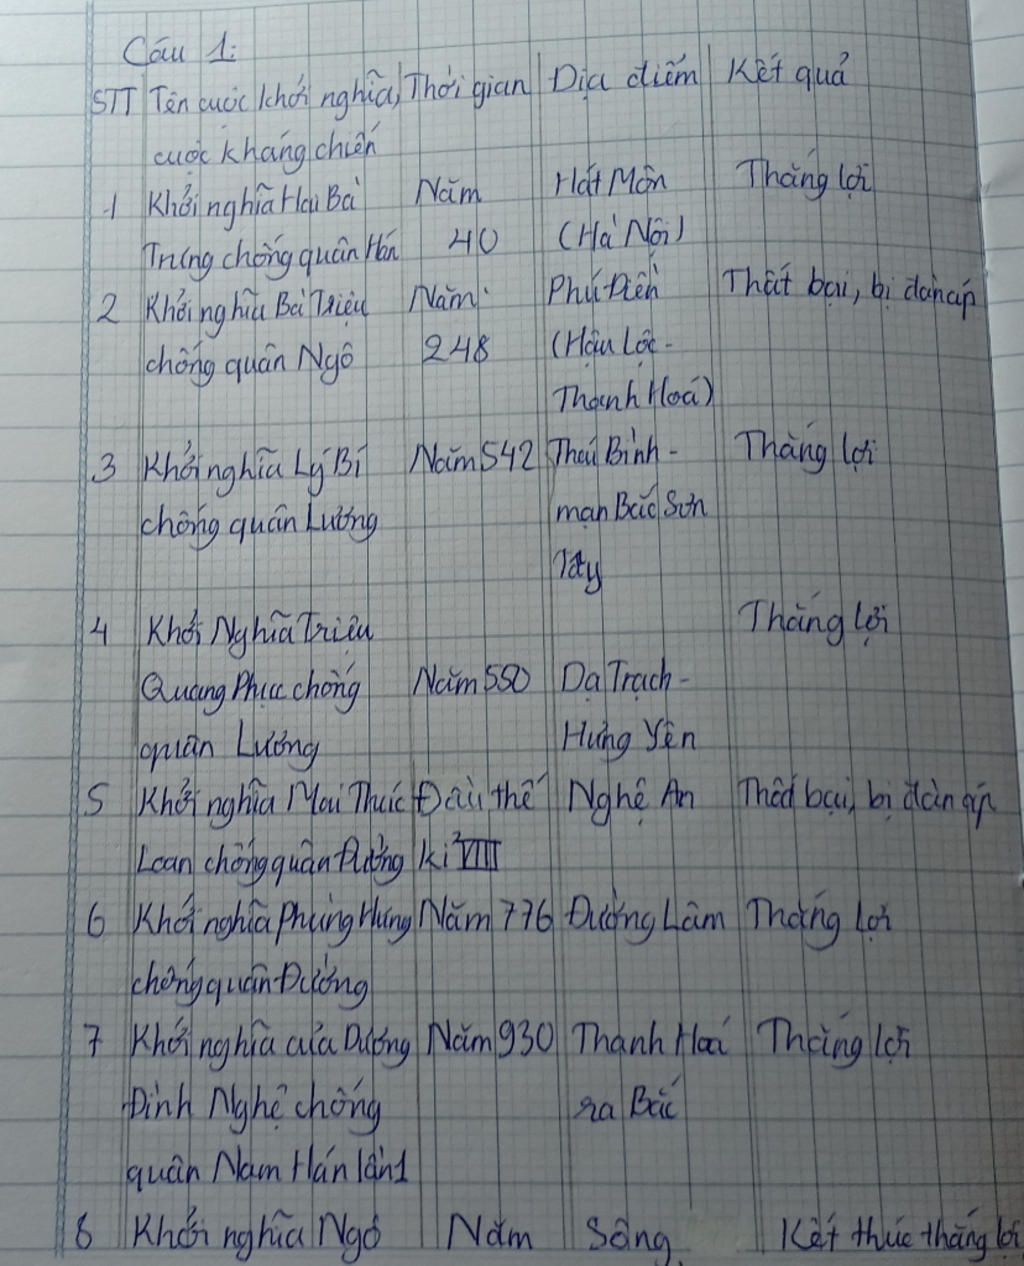 Câu 1:
STT Tên cuộc khởi nghĩa, Thời gian Địa điểm Kết quả
cuộc kháng chiến
1 Khởi nghĩa Hai Bà Năm Hát Môn Thắng lợi
Trưng chống quân Hán 40 (Hà Nội)
2 Khởi nghĩa Bà Triệu Năm Phú Điền Thất bại, bị đàn áp
chống quân Ngô 248 (Hậu Lộc -
Thanh Hoá)
3 Khởi nghĩa Lý Bí Năm 542 Thái Bình - Thắng lợi
chống quân Lương mạn Bắc Sơn
Tây
4 Khởi Nghĩa Triệu Thắng lợi
Quang Phục chống Năm 550 Dạ Trạch -
quân Lương Hưng Yên
5 Khởi nghĩa Mai Thúc Đầu thế Nghệ An Thất bại, bị đàn áp
Loan chống quân Đường kỉ VIII
6 Khởi nghĩa Phùng Hưng Năm 776 Đường Lâm Thắng lợi
chống quân Đường
7 Khởi nghĩa của Dương Năm 930 Thanh Hoá Thắng lợi
Đình Nghệ chống ra Bắc
quân Nam Hán lần 1
8 Khởi nghĩa Ngô Năm Sông Kết thúc thắng lợi